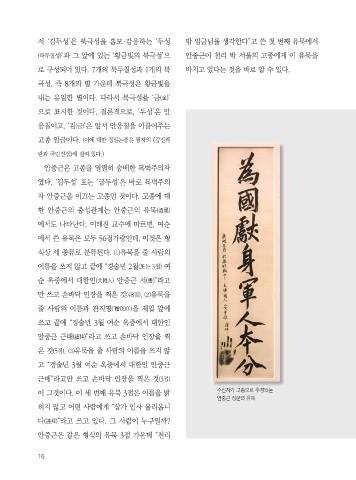 서 '김두성'은 북극성을 흠모·감응하는 '두성
(북두칠성)'과 그 앞에 있는 '황금빛의 북극성'으
로 구성되어 있다. 7개의 북두칠성과 1개의 북
극성, 즉 8개의 별 가운데 북극성은 황금빛을
내는 유일한 별이다. 따라서 북극성을 '금(金)'
으로 표시한 것이다. 결론적으로, '두성'은 안
응칠이고, '김(금)'은 앞서 안응칠을 이끌어주는
고종 임금이다.
안중근은 고종을 열렬히 숭배한 복벽주의자
였다. '김두성' 또는 '금두성'은 바로 복벽주의
자 안중근을 이끄는 고종인 것이다. 고종에 대
한 안중근의 충성관계는 안중근의 유묵(遺墨)
에서도 나타난다. 이태진 교수에 따르면, 여순
에서 쓴 유묵은 모두 56점가량인데, 이것은 형
식상 세 종류로 분류된다. (1)유묵을 줄 사람의
이름을 쓰지 않고 끝에 "경술년 2월(또는 3월) 여
순 옥중에서 대한인(大韓人) 안중근 서(書)"라고
만 쓰고 손바닥 인장을 찍은 것, (2)유묵을
줄 사람의 이름과 관직명을 제일 앞에
쓰고 끝에 "경술년 3월 여순 옥중에서 대한인
안중근 근배(謹拜)"라고 쓰고 손바닥 인장을 찍
은 것, (3)유묵을 줄 사람의 이름을 쓰지 않
고 "경술년 3월 여순 옥중에서 대한인 안중근
근배"라고만 쓰고 손바닥 인장을 찍은 것(3점)
이 그것이다. 이 세 번째 유묵 3점은 이름을 밝
히지 않고 어떤 사람에게 "삼가 인사 올리옵니
다(謹拜)"라고 쓰고 있다. 그 사람이 누구일까?
안중근은 같은 형식의 유묵 3점 가운데 "천리
밖 임금님을 생각한다"고 쓴 첫 번째 유묵에서
안중근이 천리 밖 서울의 고종에게 이 유묵을
바치고 있다는 것을 바로 알 수 있다.
為國獻身軍人本分
수신자가 고종으로 추정되는
안중근 장군의 유묵
16